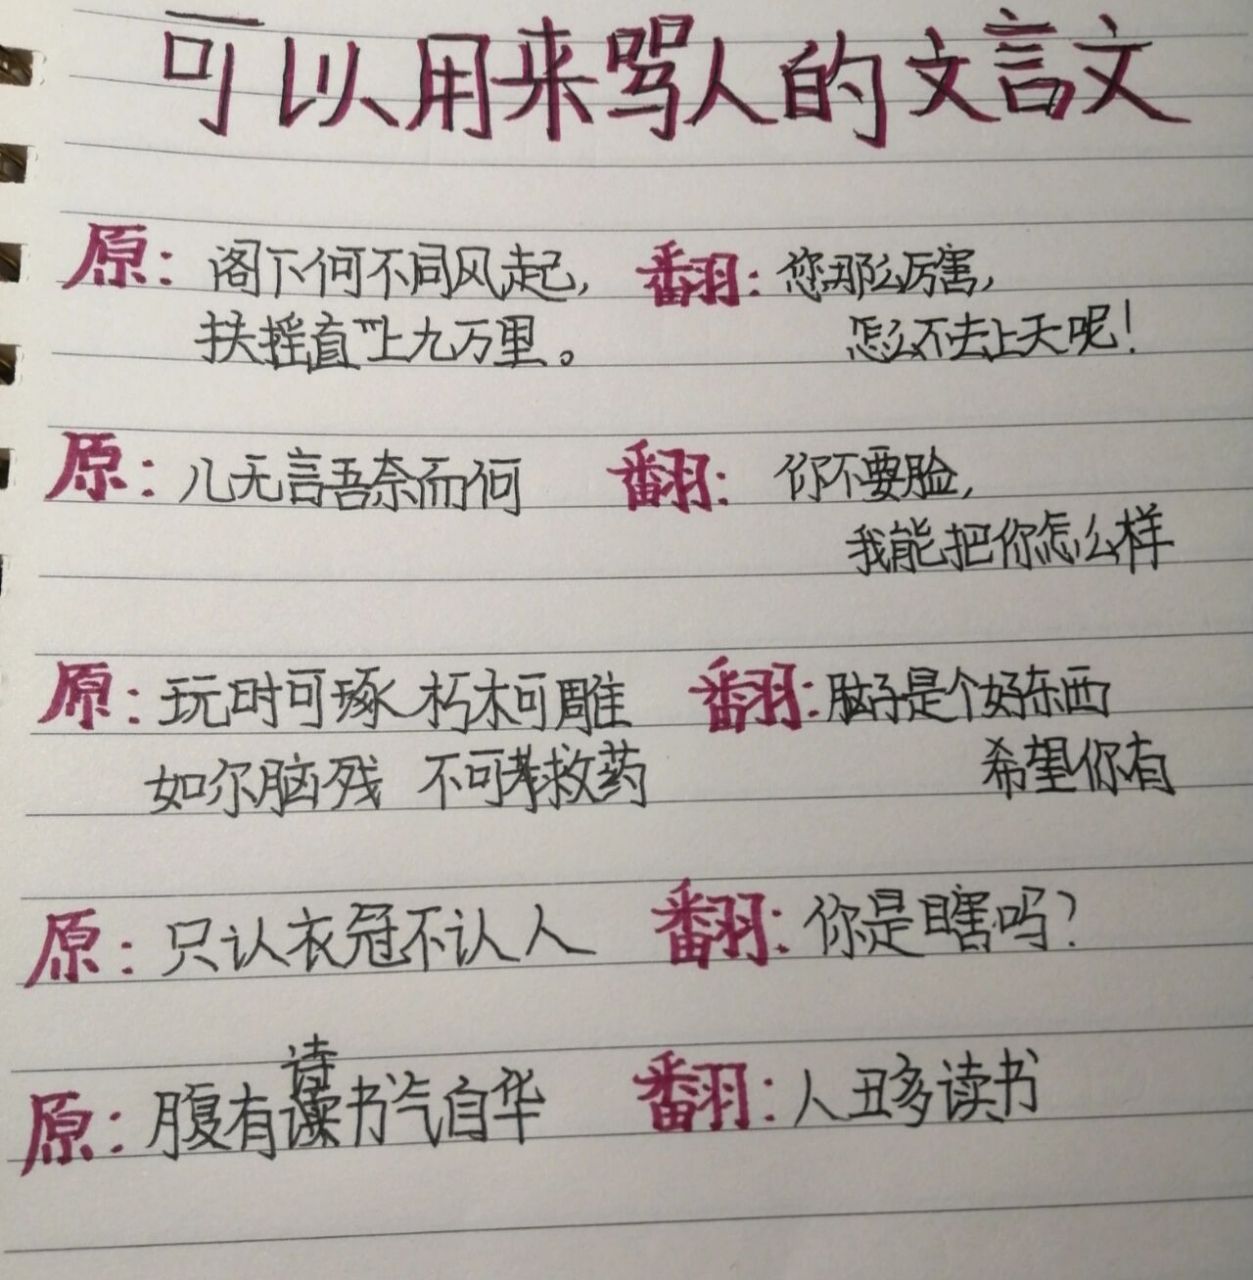 可以用来骂人的文言文
原：阁下何不同风起， 翻：您那么厉害，
扶摇直上九万里。 怎么不去上天呢！
原：儿无言吾奈而何 翻：你不要脸，
我能把你怎么样
原：玩时可琢 朽木可雕 翻：脑子是个好东西
如尔脑残 不可救药 希望你有
原：只认衣冠不认人 翻：你是瞎吗？
诗
原：腹有书气自华 翻：人丑多读书